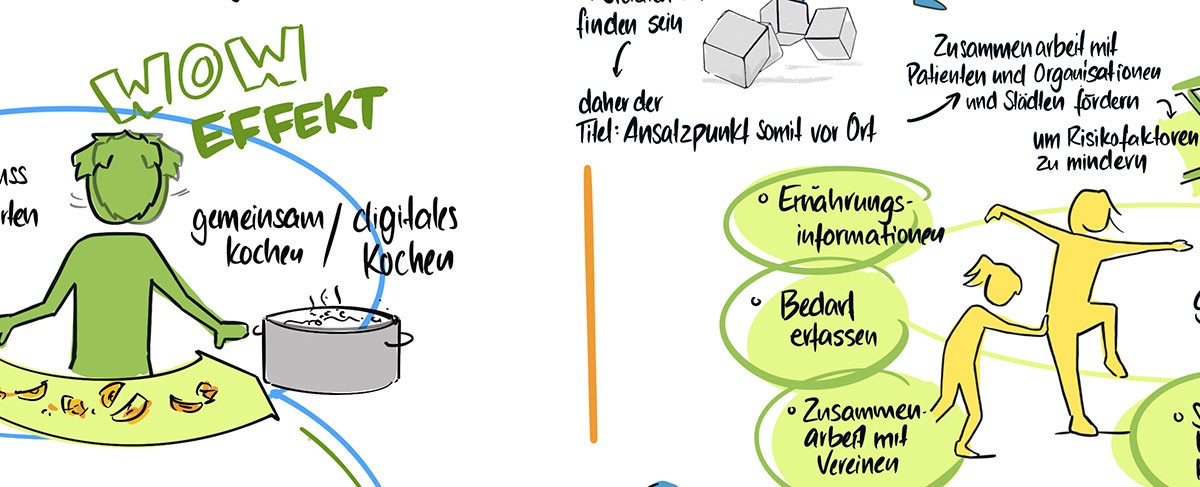 WOW
EFFEKT
gemeinsam / digitales
kochen kochen
finden sein
daher der
Titel: Ansatzpunkt somit vor Ort
Zusammenarbeit mit
Patienten und Organisationen
und Städten fördern
um Risikofaktoren
zu mindern
Ernährungs-
informationen
Bedarf
erfassen
Zusammen-
arbeit mit
Vereinen